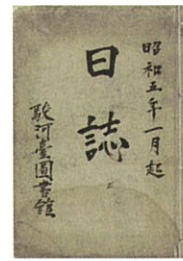 昭和五年一月起
日誌
駿河臺圖書館